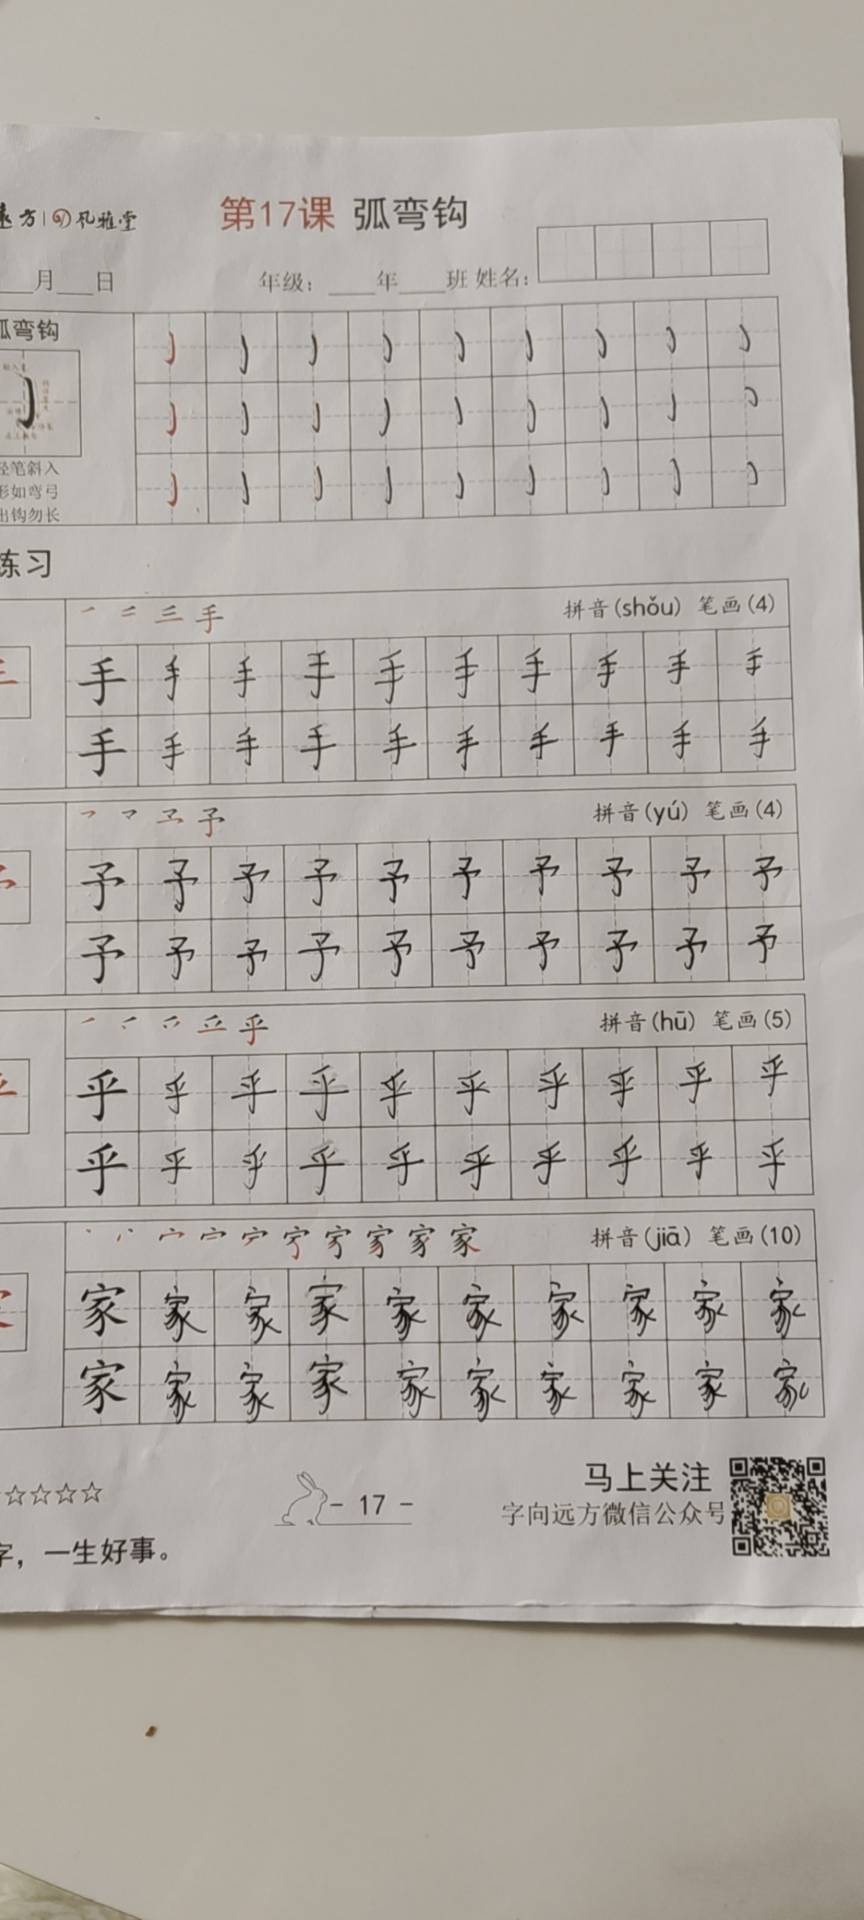 方 凤雅堂
第17课 弧弯钩
月 日 年级： 年 班 姓名：
弧弯钩
轻笔斜入
形如弯弓
出钩勿长
练习
拼音(shǒu) 笔画(4)
手 手 手 手 手 手 手 手 手 手
手 手 手 手 手 手 手 手 手 手
拼音(yú) 笔画(4)
予 予 予 予 予 予 予 予 予 予
予 予 予 予 予 予 予 予 予 予
拼音(hū) 笔画(5)
乎 乎 乎 乎 乎 乎 乎 乎 乎 乎
乎 乎 乎 乎 乎 乎 乎 乎 乎 乎
拼音(jiā) 笔画(10)
家 家 家 家 家 家 家 家 家 家
家 家 家 家 家 家 家 家 家 家
☆☆☆☆
- 17 -
马上关注
字向远方微信公众号
字，一生好事。